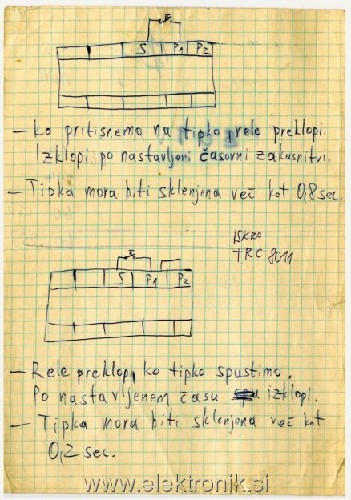 S P1 P2
– Ko pritisnemo na tipko rele preklopi.
Izklopi po nastavljeni časovni zakasnitvi.
– Tipka mora biti sklenjena več kot 0,8 sec.
ISKRA
TRC 8011
S P1 P2
– Rele preklopi, ko tipko spustimo.
Po nastavljenem času izklopi.
– Tipka mora biti sklenjena več kot
0,2 sec.
www.elektronik.si